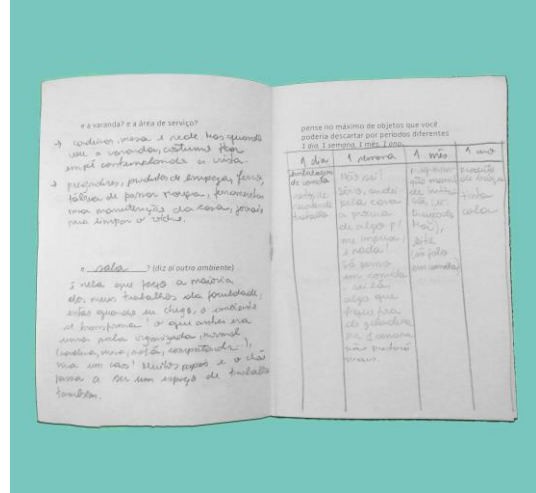 e a varanda? e a área de serviço?
→ cadeiras, mesa e rede mas quando
vou a varanda, costumo ficar
em pé contemplando a vista
→ pregadores, produtos de limpeza, ferro,
tábua de passar roupa, ferramentas
para manutenção da casa, jornais
para limpar o vidro.
e sala ? (diz aí outro ambiente)
É nela que faço a maioria
dos meus trabalhos da faculdade,
então quando eu chego, o ambiente
se transforma! o que antes era
uma sala organizada, normal
(cadeira, mesa, sofá, computador),
vira um caos! Muitos papéis e o chão
passa a ser um espaço de trabalho
também.
pense no máximo de objetos que você
poderia descartar por períodos diferentes
1 dia, 1 semana, 1 mês, 1 ano.
1 dia
embalagem
de comida
restos de
de
trabalho
1 semana
Não sei!
Sério, andei
pela casa
a procura
de algo p/
me inspirar,
e nada!
Só penso
em comida
sei lá
algo que
fique fora
da geladeira
por 1 semana
não prestará
mais.
1 mês
que marca
leite
(só falo
em comida)
1 ano
produto
de limpeza
tinta
cola